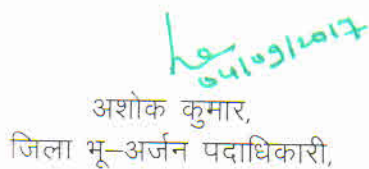 04/09/2017
अशोक कुमार,
जिला भू–अर्जन पदाधिकारी,